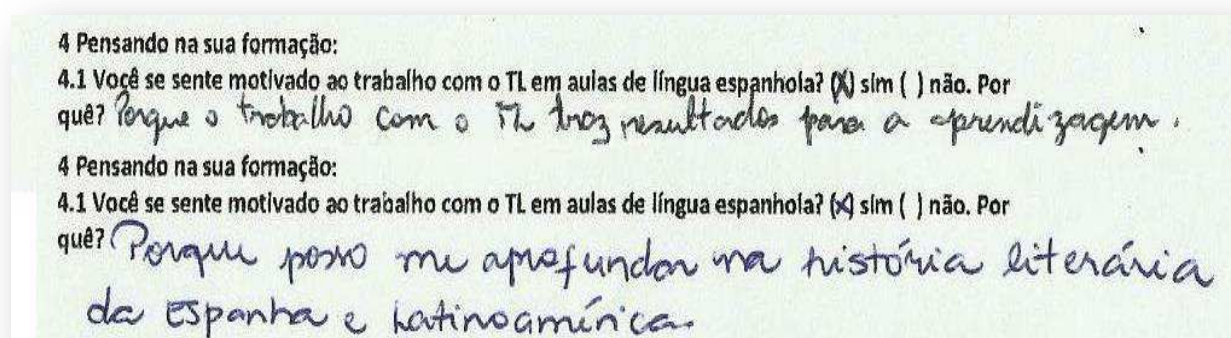 4 Pensando na sua formação:
4.1 Você se sente motivado ao trabalho com o TL em aulas de língua espanhola? (X) sim ( ) não. Por
quê? Porque o trabalho com o TL traz resultados para a aprendizagem.
4 Pensando na sua formação:
4.1 Você se sente motivado ao trabalho com o TL em aulas de língua espanhola? (X) sim ( ) não. Por
quê? Porque posso me aprofundar na história literária
da Espanha e Latinoamérica.